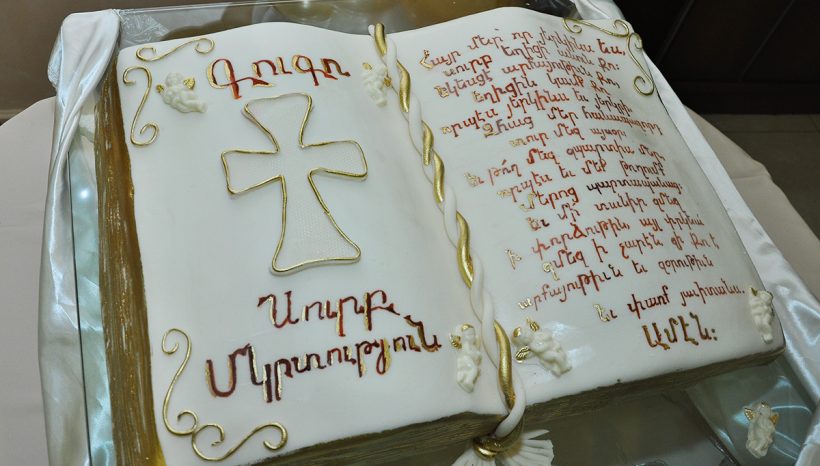 Գուգո
Սուրբ
Մկրտություն
Հայր մեր որ յերկինս ես,
սուրբ եղիցի անուն քո
Եկեսցէ արքայութիւն քո
եղիցին կամք քո
որպէս յերկինս եւ յերկրի
Զհաց մեր հանապազորդ
տուր մեզ այսօր
եւ թող մեզ զպարտիս մեր
որպէս եւ մեք թողումք
մերոց պարտապանաց
եւ մի տանիր զմեզ
ի փորձութիւն այլ փրկեա
զմեզ ի չարէն զի քո է
արքայութիւն եւ զօրութիւն
եւ փառք յաւիտեանս
Ամէն: